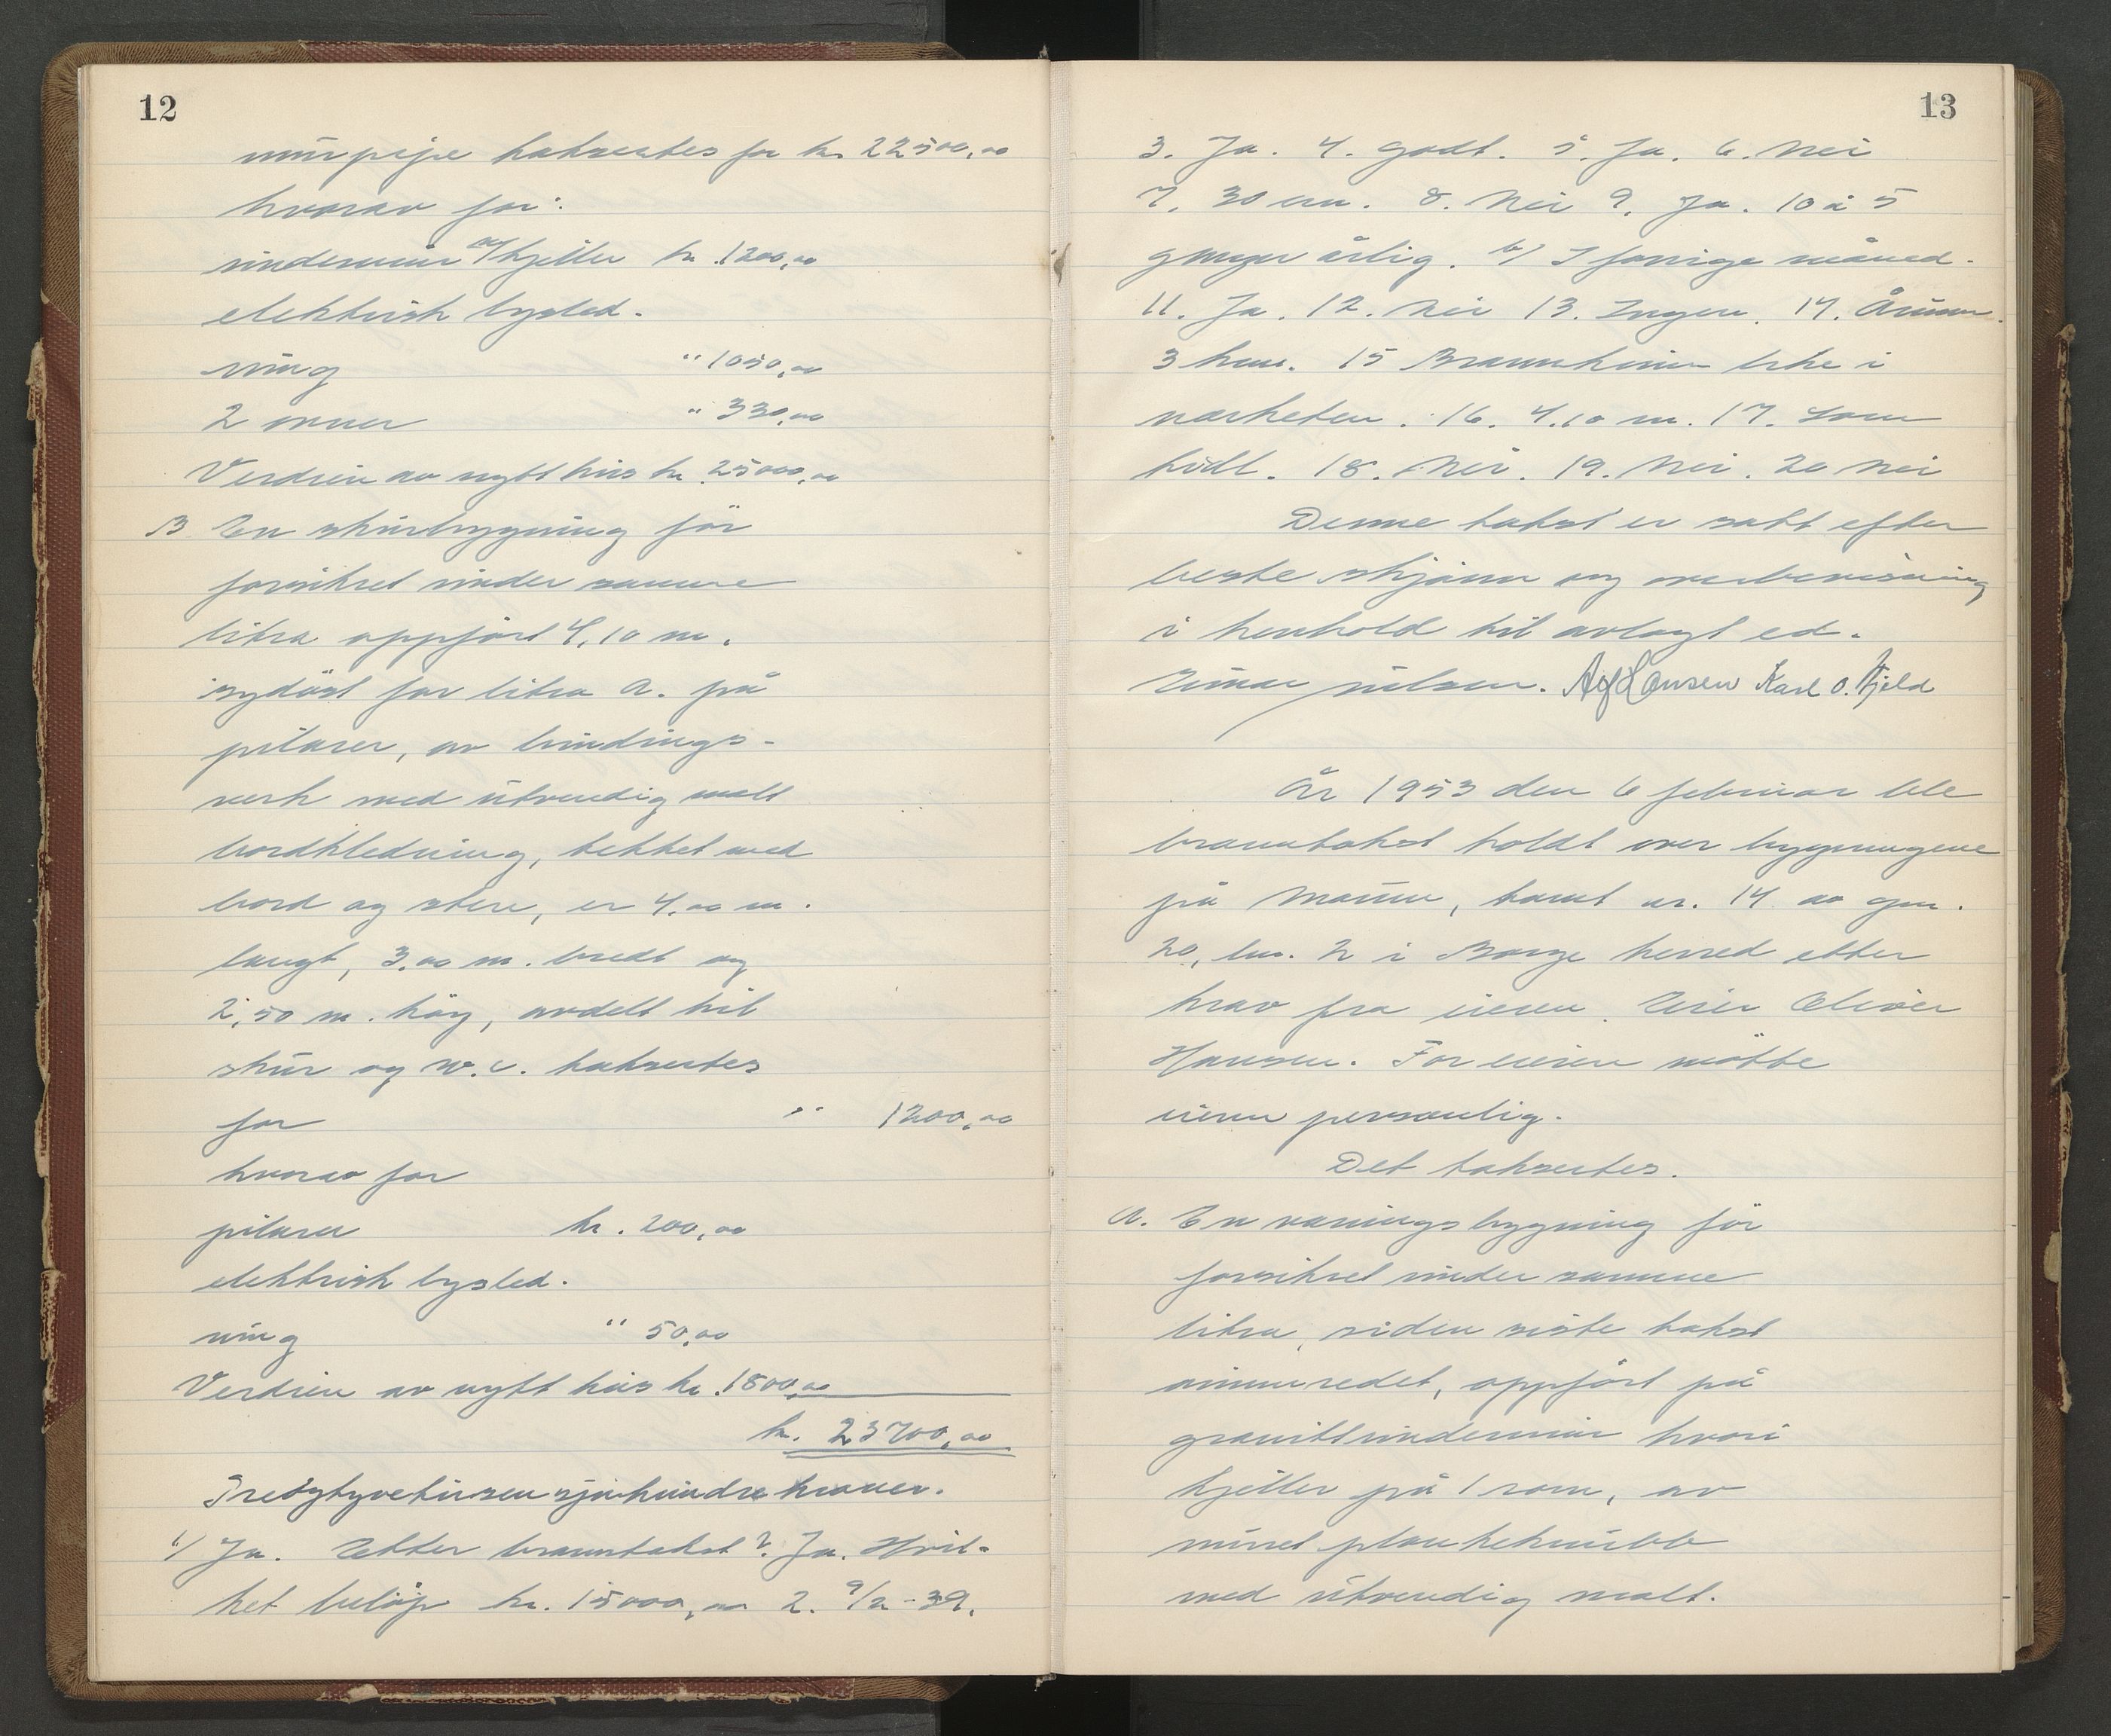 12
murpipe takseres for kr 22500,00
hvorav for:
undermur m/kjeller kr. 1200,00
elektrisk lysled-
ning " 1050,00
2 ovner " 330,00
Verdien av nytt hus kr. 25000,00
B. En skurbygning før
forsikret under samme
litra oppført 4,10 m.
sydøst for litra A. på
pilarer, av bindings-
verk med utvendig malt
bordkledning, tekket med
bord og stein, er 4,00 m.
langt, 3,00 m. bredt og
2,50 m. høy, avdelt til
skur og w.c. takseres
for " 1200,00
hvorav for
pilarer kr. 200,00
elektrisk lysled-
ning " 50,00
Verdien av nytt hus kr. 1800,00
kr. 23700,00
Treogtyvetusen sjuhundre kroner.
1/ Ja. Etter branntakst? Ja. Hvil-
ket beløp kr. 15000,00 2. 9/2-39.
13
3. Ja. 4. Godt. 5. Ja. 6. Nei
7. 30 cm. 8. Nei 9. Ja. 10 a 5
ganger årlig. b/ I forrige måned.
11. Ja. 12. Nei 13. Ingen. 14. Årum
3 km. 15 Brannkum like i
nærheten. 16. 4.10 m. 17. Som
tidl. 18. Nei. 19. Nei. 20 Nei
Denne takst er satt efter
beste skjønn og overbevisning
i henhold til avlagt ed.
Einar Nilsen. Alf Hansen Karl O. Kjeld
År 1953 den 6 februar ble
branntakst holdt over bygningene
på Maum, tomt nr. 14 av gnr.
20, bnr. 2 i Borge herred etter
krav fra eieren. Eier Oliver
Hansen. For eieren møtte
eieren personlig.
Det takseres.
A. En våningsbygning før
forsikret under samme
litra, siden siste takst
ominnredet, oppført på
granittundermur hvori
kjeller på 1 rom, av
muret plankekubb
med utvendig malt.